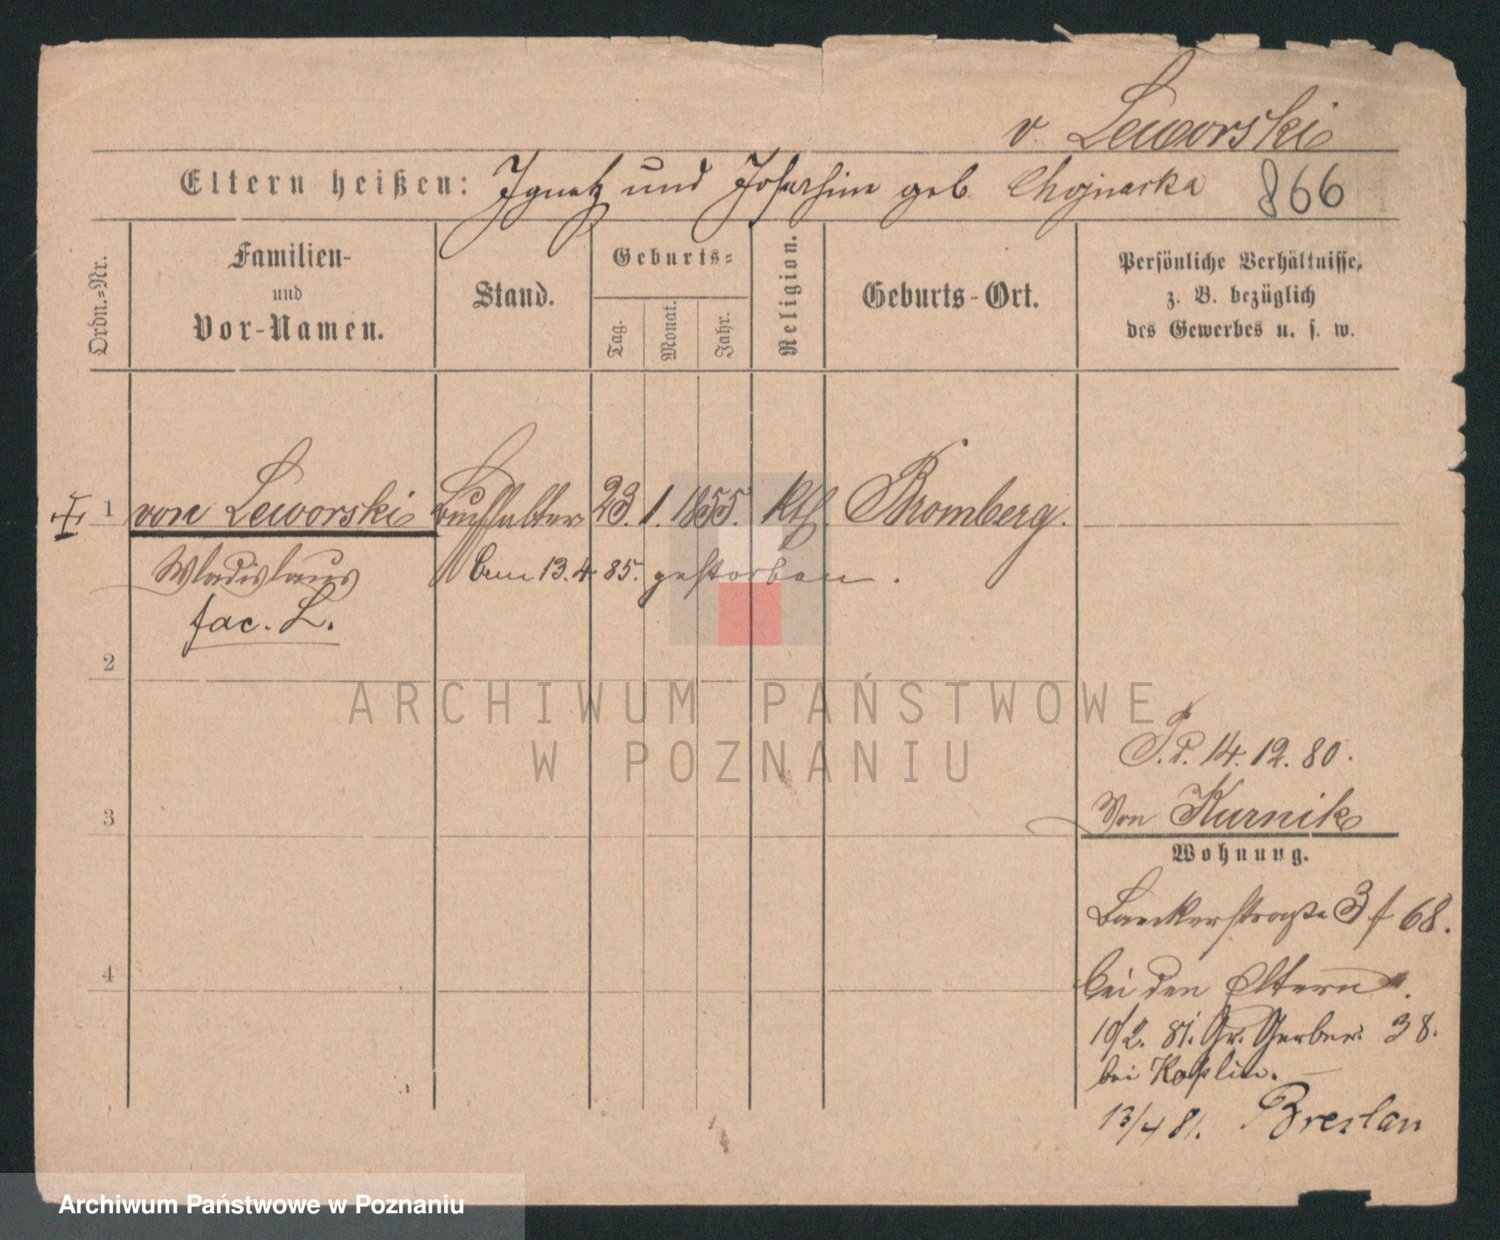 v. Leworski
Eltern heißen: Ignatz und Josephine geb. Chojnacka 866
Ordn.=Nr.
Familien-
und
Vor-Namen.
Stand.
Geburts=
Tag.
Monat.
Jahr.
Religion.
Geburts-Ort.
Persönliche Verhältnisse,
z. B. bezüglich
des Gewerbes u. s. w.
1 von Leworski Buchhalter 23. 1. 1855. kth. Bromberg.
Wladislaus
13.4.85. gestorben.
fac. L.
2
ARCHIWUM PAŃSTWOWE
W POZNANIU
P.P. 14.12.80.
3
Von Kurnik
Wohnung.
Baeckerstraße 3 f 68.
4
bei den Eltern.
19/2. 81. Gr. Gerber. 38.
bei Koplin.
13/4 81. Breslau
Archiwum Państwowe w Poznaniu